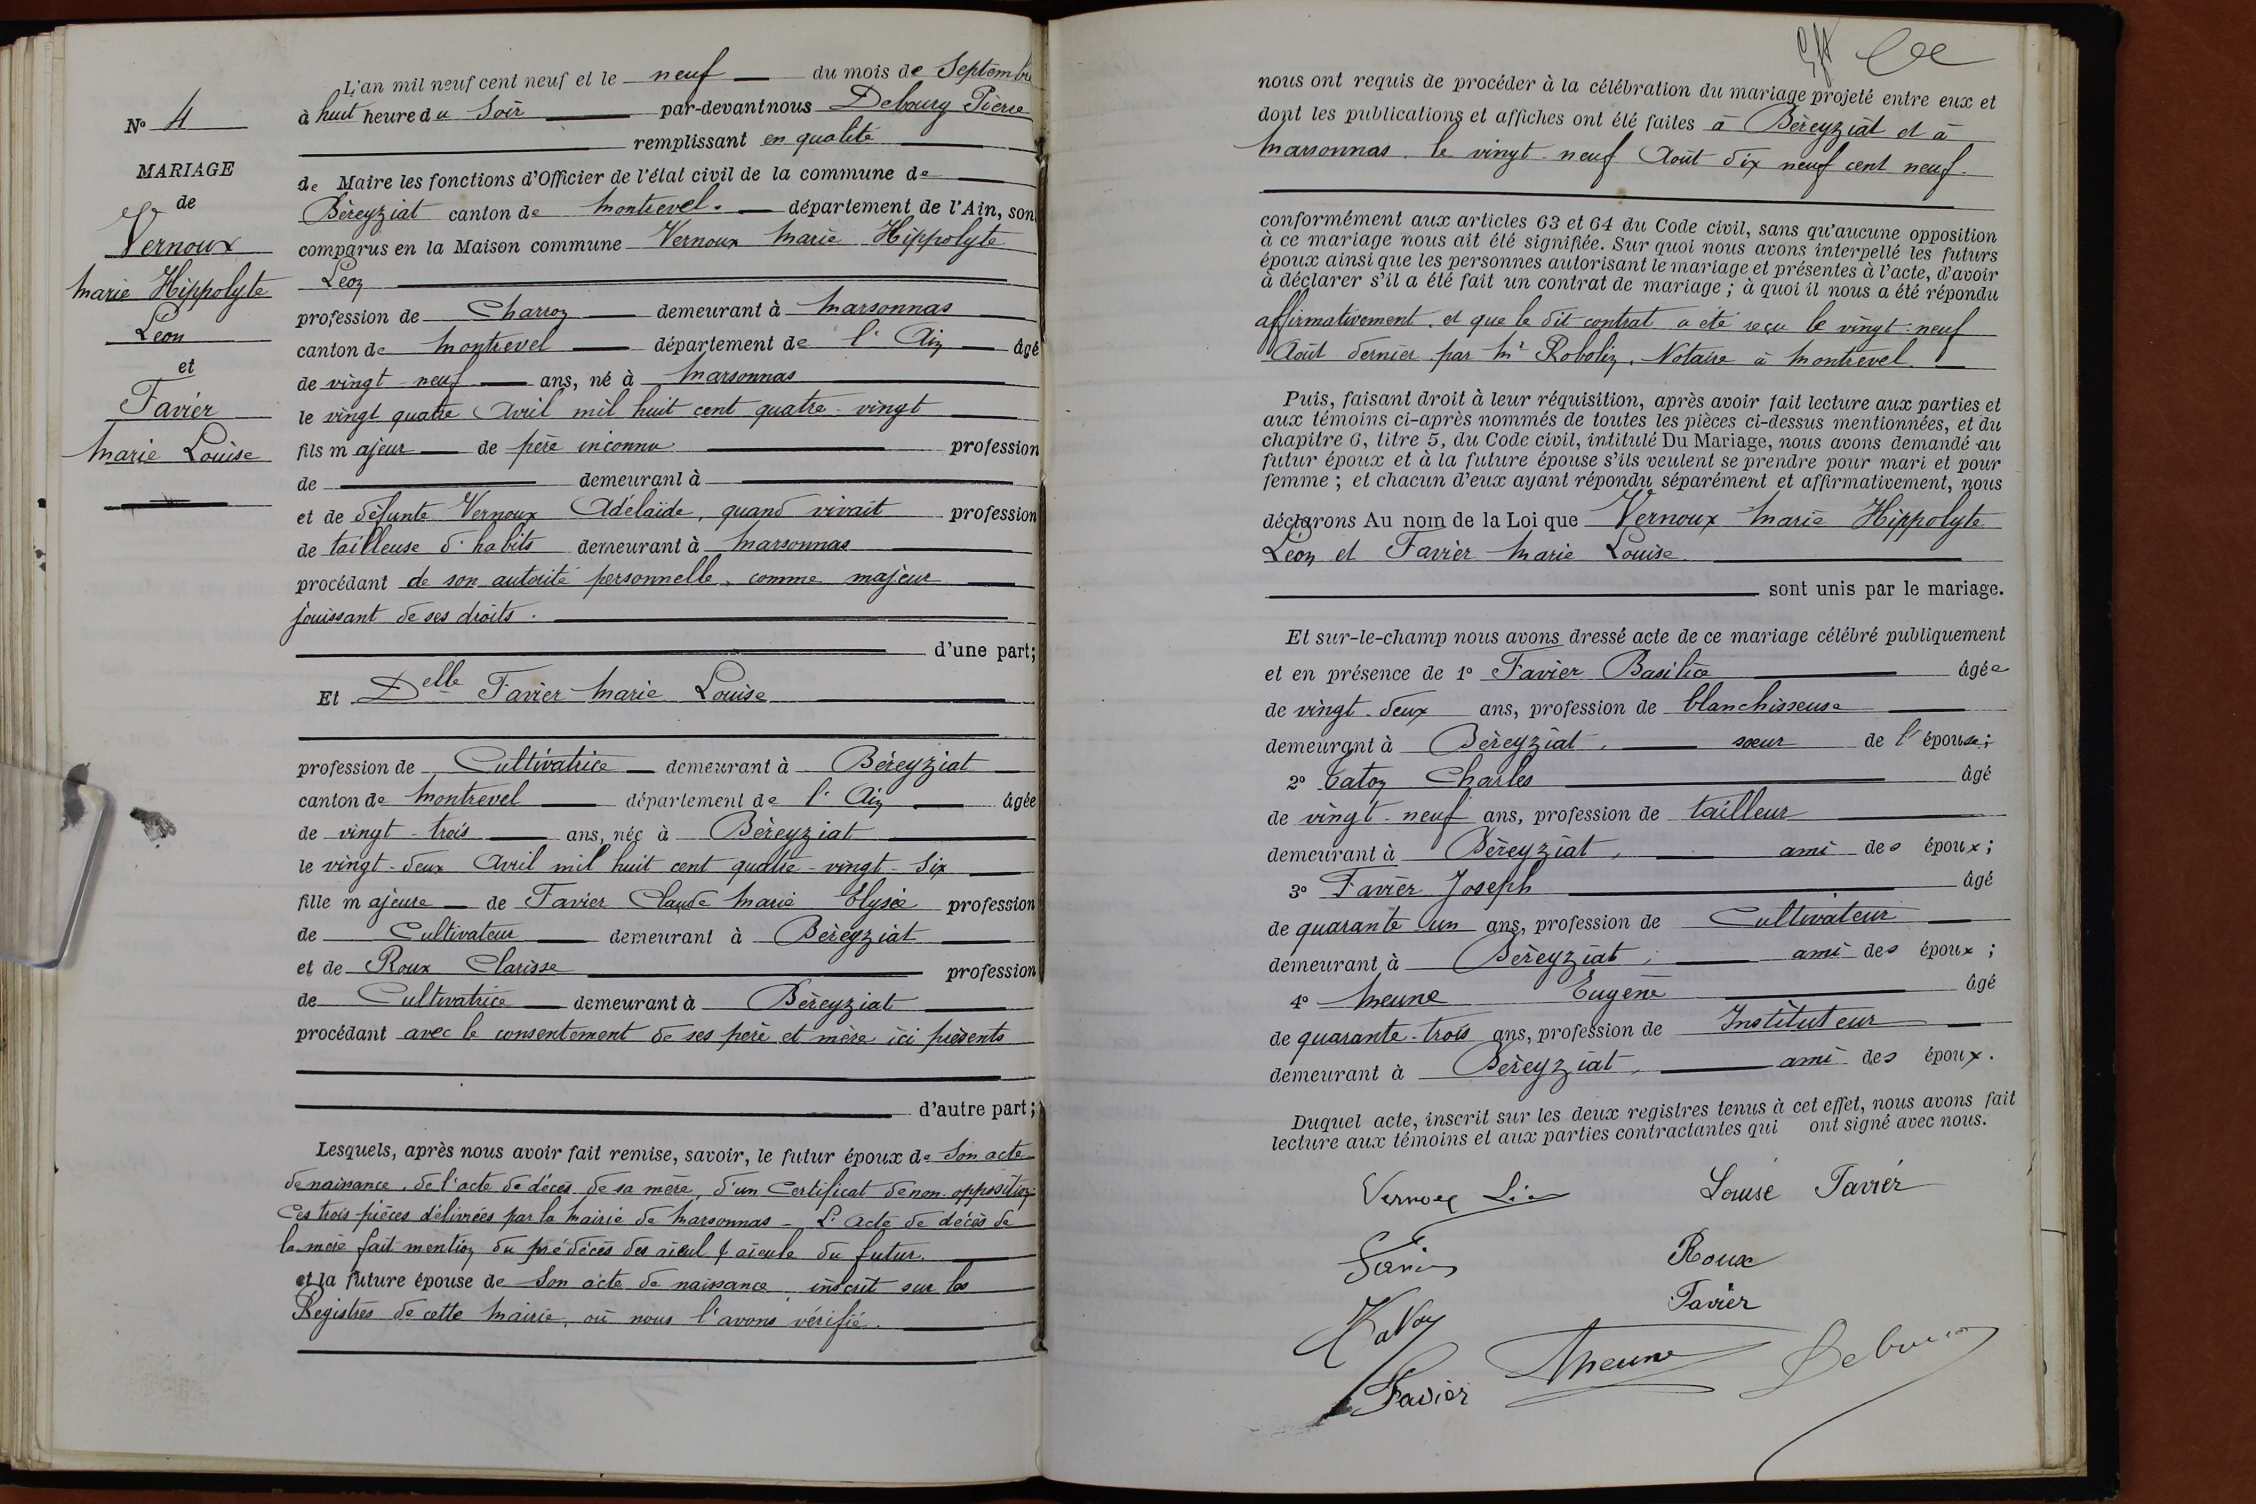 N° 4
MARIAGE
de
Vernoux
Marie Hippolyte
Léon
et
Favier
Marie Louise
L'an mil neuf cent neuf et le neuf du mois de Septembre
à huit heure du Soir par-devant nous Debourg Pierre
remplissant en qualité
de Maire les fonctions d'Officier de l'état civil de la commune de
Béreyziat canton de Montrevel. département de l'Ain, son
comparus en la Maison commune Vernoux Marie Hippolyte
Léon
profession de Charron demeurant à Marsonnas
canton de Montrevel département de l'Ain âgé
de vingt-neuf ans, né à Marsonnas
le vingt quatre Avril mil huit cent quatre-vingt
fils majeur de père inconnu profession
de demeurant à
et de défunte Vernoux Adélaïde, quand vivait profession
de tailleuse d'habits demeurant à Marsonnas
procédant de son autorité personnelle, comme majeur
jouissant de ses droits.
d'une part;
Et Delle Favier Marie Louise
profession de Cultivatrice demeurant à Béreyziat
canton de Montrevel département de l'Ain âgée
de vingt-trois ans, née à Béreyziat
le vingt-deux Avril mil huit cent quatre-vingt-six
fille majeure de Favier Claude Marie Elysée profession
de Cultivateur demeurant à Béreyziat
et de Roux Clarisse profession
de Cultivatrice demeurant à Béreyziat
procédant avec le consentement de ses père et mère ici présents
d'autre part;
Lesquels, après nous avoir fait remise, savoir, le futur époux de Son acte
de naissance, de l'acte de décès de sa mère, d'un Certificat de non-opposition
Ces trois pièces délivrées par la Mairie de Marsonnas - L'acte de décès de
la mère fait mention du prédécès des aïeul & aïeule du futur.
et la future épouse de Son acte de naissance inscrit sur les
Registres de cette Mairie, où nous l'avons vérifié.
nous ont requis de procéder à la célébration du mariage projeté entre eux et
dont les publications et affiches ont été faites à Béreyziat et à
Marsonnas le vingt-neuf Août dix neuf cent neuf.
conformément aux articles 63 et 64 du Code civil, sans qu'aucune opposition
à ce mariage nous ait été signifiée. Sur quoi nous avons interpellé les futurs
époux ainsi que les personnes autorisant le mariage et présentes à l'acte, d'avoir
à déclarer s'il a été fait un contrat de mariage; à quoi il nous a été répondu
affirmativement, et que le dit contrat a été reçu le vingt-neuf
Août dernier par Me Robolin, Notaire à Montrevel.
Puis, faisant droit à leur réquisition, après avoir fait lecture aux parties et
aux témoins ci-après nommés de toutes les pièces ci-dessus mentionnées, et du
chapitre 6, titre 5, du Code civil, intitulé Du Mariage, nous avons demandé au
futur époux et à la future épouse s'ils veulent se prendre pour mari et pour
femme; et chacun d'eux ayant répondu séparément et affirmativement, nous
déclarons Au nom de la Loi que Vernoux Marie Hippolyte
Léon et Favier Marie Louise
sont unis par le mariage.
Et sur-le-champ nous avons dressé acte de ce mariage célébré publiquement
et en présence de 1° Favier Basilice âgée
de vingt-deux ans, profession de blanchisseuse
demeurant à Béreyziat, sœur de l'épouse;
2° Caton Charles âgé
de vingt-neuf ans, profession de tailleur
demeurant à Béreyziat, ami des époux;
3° Favier Joseph âgé
de quarante un ans, profession de Cultivateur
demeurant à Béreyziat, ami des époux;
4° Meune Eugène âgé
de quarante-trois ans, profession de Instituteur
demeurant à Béreyziat, ami des époux.
Duquel acte, inscrit sur les deux registres tenus à cet effet, nous avons fait
lecture aux témoins et aux parties contractantes qui ont signé avec nous.
Vernoux Louise Favier
Roux
Favier
Favier Meune